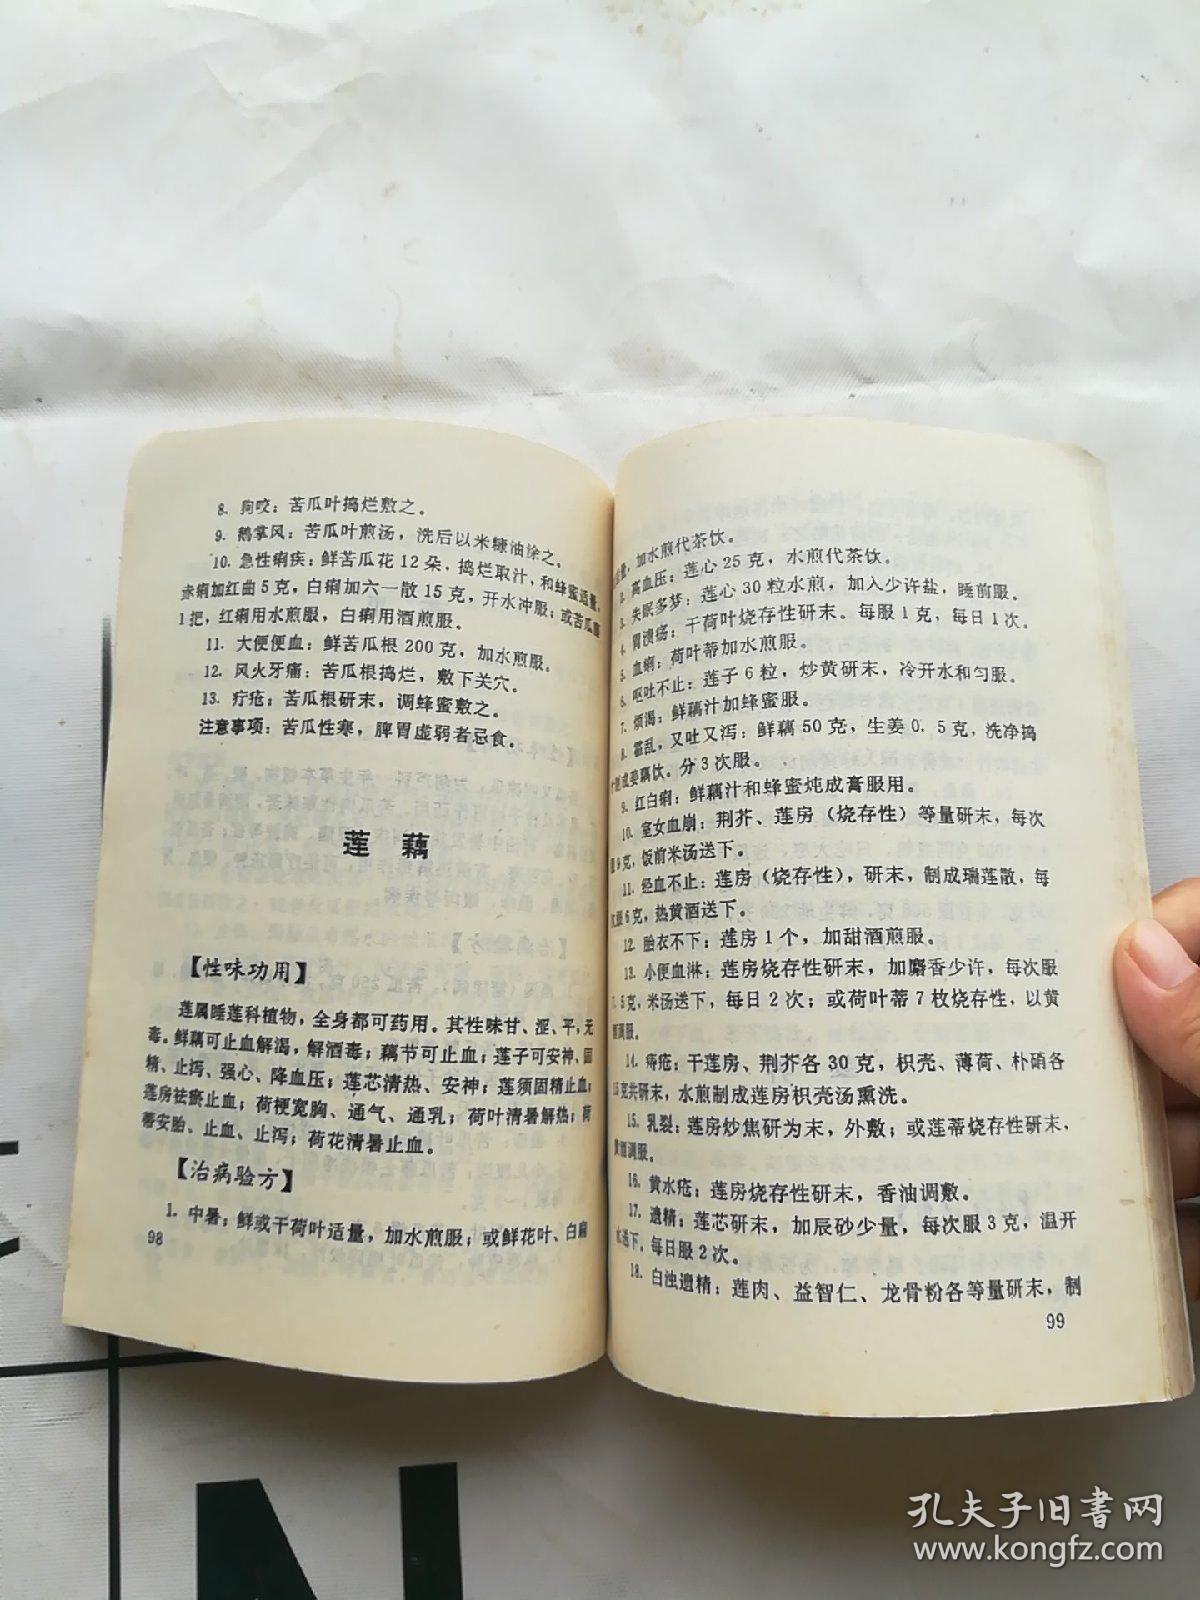 8. 狗咬：苦瓜叶捣烂敷之。
9. 鹅掌风：苦瓜叶煎汤，洗后以米糠油涂之。
10. 急性痢疾：鲜苦瓜花12朵，捣烂取汁，和蜂蜜适量，
赤痢加红曲5克，白痢加六一散15克，开水冲服；或苦瓜
1把，红痢用水煎服，白痢用酒煎服。
11. 大便便血：鲜苦瓜根200克，加水煎服。
12. 风火牙痛：苦瓜根捣烂，敷下关穴。
13. 疔疮：苦瓜根研末，调蜂蜜敷之。
注意事项：苦瓜性寒，脾胃虚弱者忌食。
莲藕
【性味功用】
莲属睡莲科植物，全身都可药用。其性味甘、涩、平，无
毒。鲜藕可止血解渴，解酒毒；藕节可止血；莲子可安神、固
精、止泻、强心、降血压；莲芯清热、安神；莲须固精止血；
莲房祛瘀止血；荷梗宽胸、通气、通乳；荷叶清暑解热；荷
蒂安胎、止血、止泻；荷花清暑止血。
【治病验方】
1. 中暑：鲜或干荷叶适量，加水煎服；或鲜花叶、白扁
98
量，加水煎代茶饮。
2. 高血压：莲心25克，水煎代茶饮。
3. 失眠多梦：莲心30粒水煎，加入少许盐，睡前服。
4. 胃溃疡：干荷叶烧存性研末。每服1克，每日1次。
5. 血痢：荷叶蒂加水煎服。
6. 呕吐不止：莲子6粒，炒黄研末，冷开水和匀服。
7. 烦渴：鲜藕汁加蜂蜜服。
8. 霍乱，又吐又泻：鲜藕50克，生姜0.5克，洗净捣
成姜藕饮。分3次服。
9. 红白痢：鲜藕汁和蜂蜜炖成膏服用。
10. 室女血崩：荆芥、莲房（烧存性）等量研末，每次
服9克，饭前米汤送下。
11. 经血不止：莲房（烧存性），研末，制成瑞莲散，每
次服6克，热黄酒送下。
12. 胎衣不下：莲房1个，加甜酒煎服。
13. 小便血淋：莲房烧存性研末，加麝香少许，每次服
.5克，米汤送下，每日2次；或荷叶蒂7枚烧存性，以黄
酒调服。
14. 痔疮：干莲房、荆芥各30克，枳壳、薄荷、朴硝各
15克共研末，水煎制成莲房枳壳汤熏洗。
15. 乳裂：莲房炒焦研为末，外敷；或莲蒂烧存性研末，
黄酒调服。
16. 黄水疮：莲房烧存性研末，香油调敷。
17. 遗精：莲芯研末，加辰砂少量，每次服3克，温开
水送下，每日服2次。
18. 白浊遗精：莲肉、益智仁、龙骨粉各等量研末，制
99
孔夫子旧书网
www.kongfz.com